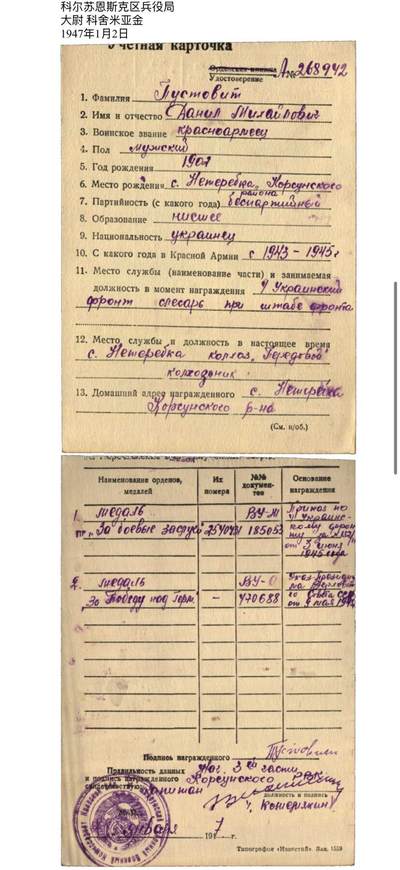 科尔苏恩斯克区兵役局
大尉 科舍米亚金
1947年1月2日
Учетная карточка
Орденская книжка
Удостоверение А № 268942
1. Фамилия Пустовит
2. Имя и отчество Данил Михайлович
3. Воинское звание красноармеец
4. Пол мужский
5. Год рождения 1907
6. Место рождения с. Нетеребка, Корсунского
района
7. Партийность (с какого года) беспартийный
8. Образование нисшее
9. Национальность украинец
10. С какого года в Красной Армии с 1943 - 1945 г
11. Место службы (наименование части) и занимаемая
должность в момент награждения Украинский
фронт слесарь при штабе фронта
12. Место службы и должность в настоящее время
с. Нетеребка колхоз "Передовой"
колхозник
13. Домашний адрес награжденного с. Нетеребка
Корсунского р-на
(См. н/об.)
Наименование орденов,
медалей
Их
номера
№№
докумен-
тов
Основание
награждения
1. медаль
"За боевые заслуги" 185053
Приказ по
Украинс-
кому фрон
ту
от 3 июня
1945 года
2. медаль
"За Победу над Герм." - 770688
Указ Президи
ума Верховно
го Совета ССС
от 9 мая 1945
Подпись награжденного Пустовит
Правильность данных
и подпись награжденного
свидетельствую
Нач. 3 ей части
Корсунского РВК
Капитан
должность и подпись
января 1947 г.
Типография «Известий». Зак. 1539